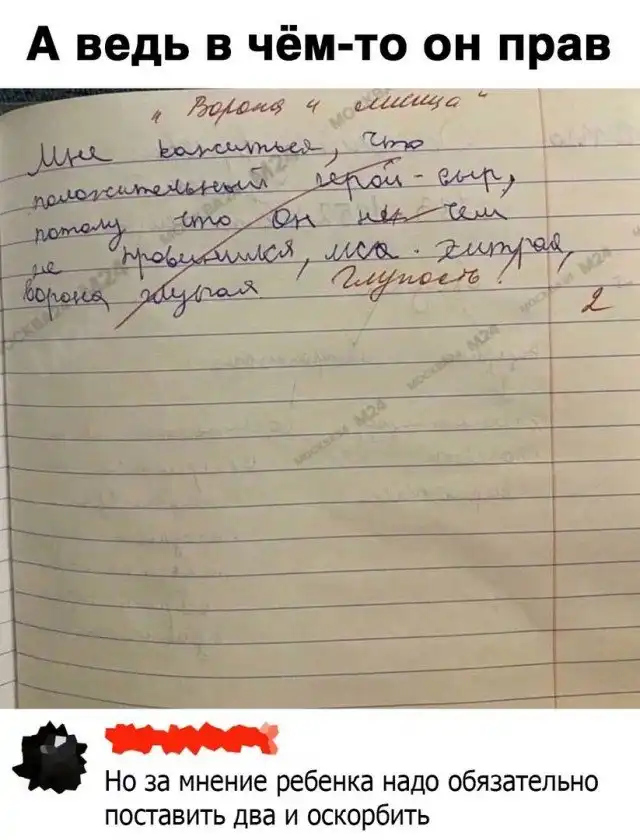 А ведь в чём-то он прав
"Ворона и лисица"
Мне кажиться, что
положительный герой - сыр,
потому что он не чем
не провинился, лиса - хитрая,
ворона глупая Глупость!
2
МОСКВА М24
МОСКВА М24
МОСКВА М24
МОСКВА М24
Но за мнение ребенка надо обязательно
поставить два и оскорбить